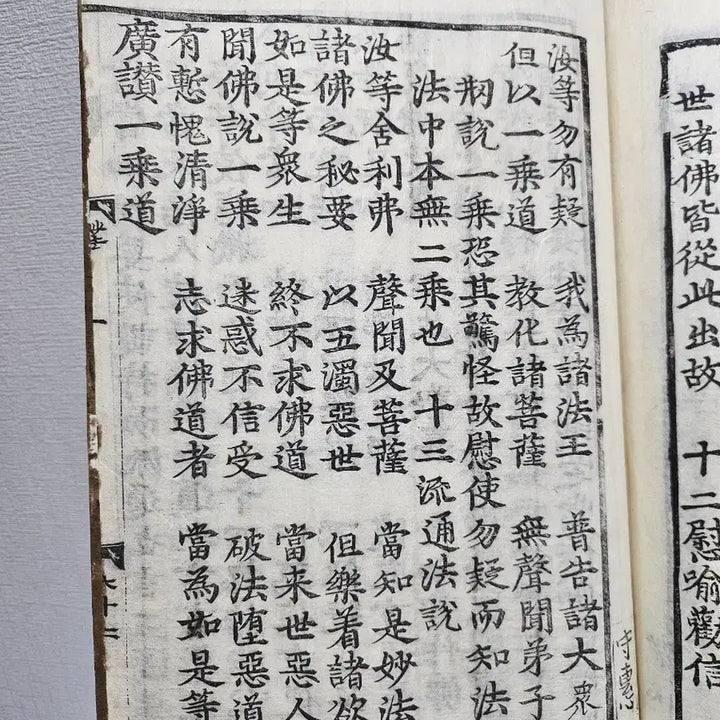 世諸佛皆從此出故 十二慰喻勸信
汝等勿有疑 我為諸法王 普告諸大衆
但以一乘道 教化諸菩薩 無聲聞弟子
說一乘恐其驚怪故慰使勿疑而知法
法中本無二乘也 十三流通法說
汝等舍利弗 聲聞及菩薩 當知是妙法
諸佛之秘要 以五濁惡世 但樂着諸欲
如是等衆生 終不求佛道 當来世惡人
聞佛說一乘 迷惑不信受 破法墮惡道
有慙愧清淨 志求佛道者 當為如是等
廣讚一乘道